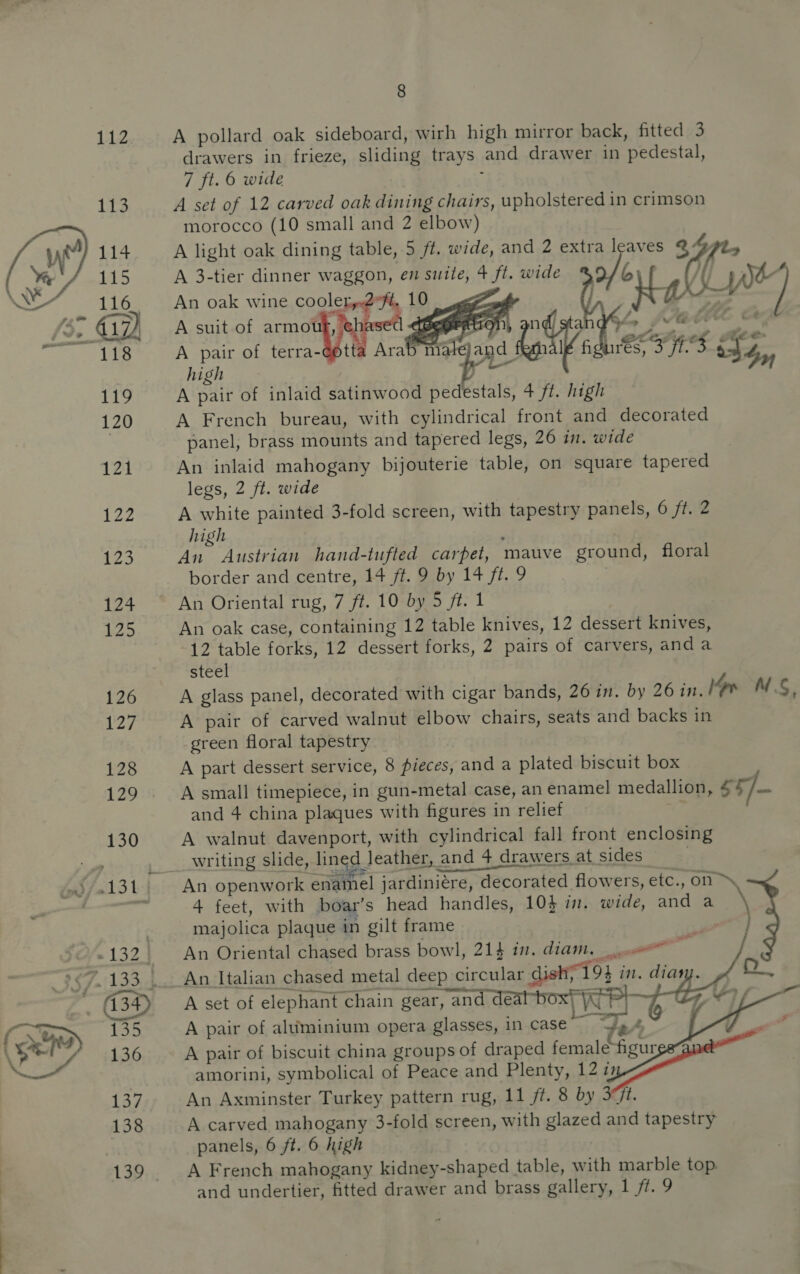 8
112 A pollard oak sideboard, wirh high mirror back, fitted 3
drawers in frieze, sliding trays and drawer in pedestal,
7 ft. 6 wide
113 A set of 12 carved oak dining chairs, upholstered in crimson
morocco (10 small and 2 elbow)
114 A light oak dining table, 5 ft. wide, and 2 extra leaves
115 A 3-tier dinner waggon, en suite, 4 ft. wide
116 An oak wine cooler, 2 ft. 10
117 A suit of armour, chased decoration, and stand
118 A pair of terra-cotta Arab male and female figures, 3 ft. 3
high
119 A pair of inlaid satinwood pedestals, 4 ft. high
120 A French bureau, with cylindrical front and decorated
panel, brass mounts and tapered legs, 26 in. wide
121 An inlaid mahogany bijouterie table, on square tapered
legs, 2 ft. wide
122 A white painted 3-fold screen, with tapestry panels, 6 ft. 2
high
123 An Austrian hand-tufted carpet, mauve ground, floral
border and centre, 14 ft. 9 by 14 ft. 9
124 An Oriental rug, 7 ft. 10 by 5 ft. 1
125 An oak case, containing 12 table knives, 12 dessert knives,
12 table forks, 12 dessert forks, 2 pairs of carvers, and a
steel
126 A glass panel, decorated with cigar bands, 26 in. by 26 in. M.S,
127 A pair of carved walnut elbow chairs, seats and backs in
green floral tapestry
128 A part dessert service, 8 pieces, and a plated biscuit box
129 A small timepiece, in gun-metal case, an enamel medallion, 55/-
and 4 china plaques with figures in relief
130 A walnut davenport, with cylindrical fall front enclosing
writing slide, lined leather, and 4 drawers at sides
131 An openwork enamel jardinière, decorated flowers, etc., on
4 feet, with boar's head handles, 10½ in. wide, and a
majolica plaque in gilt frame
132 An Oriental chased brass bowl, 21½ in. diam.
133 An Italian chased metal deep circular dish, 19½ in. diam.
134 A set of elephant chain gear, and deal box
135 A pair of aluminium opera glasses, in case
136 A pair of biscuit china groups of draped female figures and
amorini, symbolical of Peace and Plenty, 12 in.
137 An Axminster Turkey pattern rug, 11 ft. 8 by 3 ft.
138 A carved mahogany 3-fold screen, with glazed and tapestry
panels, 6 ft. 6 high
139 A French mahogany kidney-shaped table, with marble top
and undertier, fitted drawer and brass gallery, 1 ft. 9